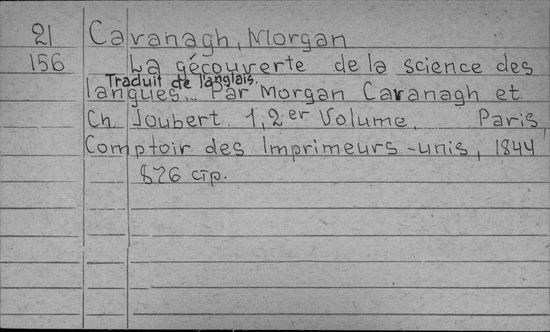 21 Cavanagh, Morgan
156 La gécouverte de la science des
Traduit de l'anglais.
langues... Par Morgan Cavanagh et
Ch. Joubert. 1,2er Volume. Paris,
Comptoir des Imprimeurs-unis, 1844
826 стр.